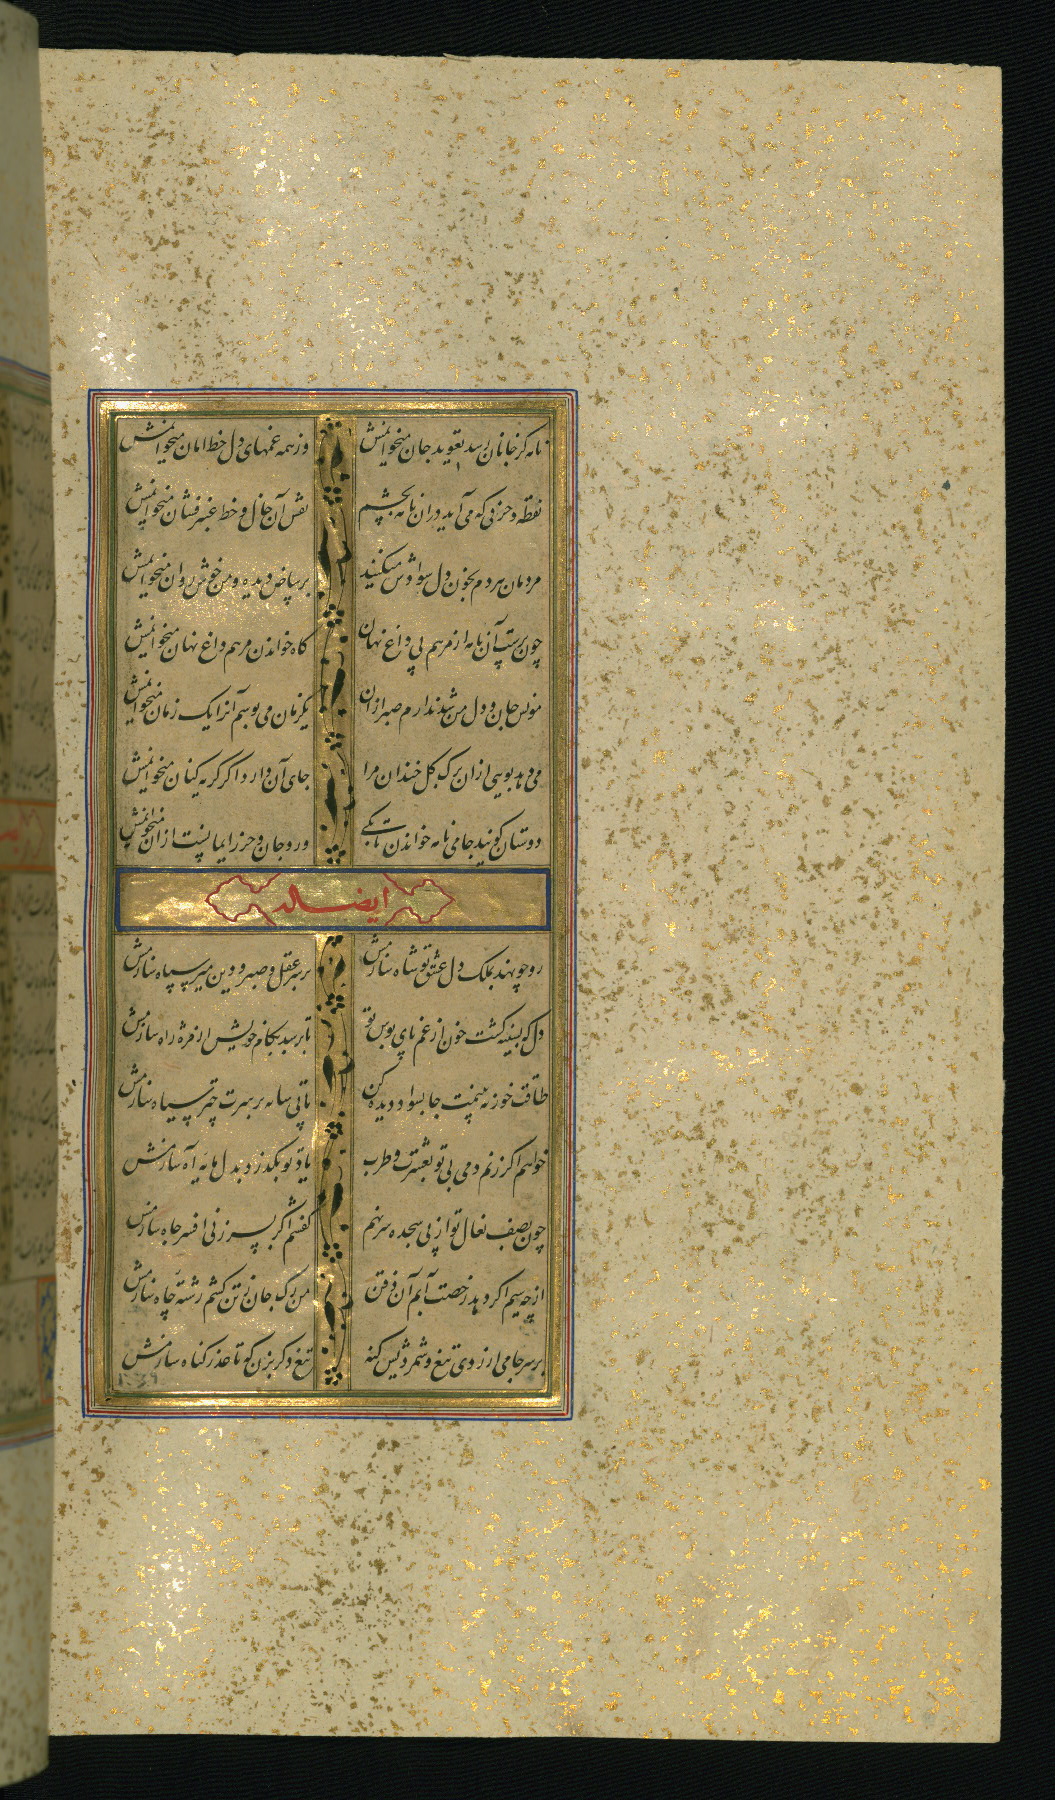 نامه کز جانان رسد تعوید جان میخوانمش
وز همه غمهای دل خط امان میخوانمش
نقطه و حرفی که می‌آید در ان نامه بچشم
نقش آن خال و خط عنبر فشان میخوانمش
مردمان هر دم بخون دل سوادش میکنند
بر بیاض دیده و من خوش روان میخوانمش
چون پرست آن نامه از مرهم پی داغ نهان
گاه خواندن مرهم داغ نهان میخوانمش
مونس جان و دل من شد ندارم صبر ازان
یکزمان می بوسم آنرا یک زمان میخوانمش
می دهد بویی ازان برک کل خندان مرا
جای آن دارد اکر کریه کنان میخوانمش
دوستان کویند جامی نامه خواندن تا بکی
ورد جان و حرز ایمانست ازان میخوانمش
ایضا له
رو چو نهد بملک دل عشق تو شاه سازمش
بر سر عقل و صبر و دین میر سپاه سازمش
دل که بسینه کشت خون از غم پای بوس تو
تا برسد بکام خویش از مژه راه سازمش
طاقت خور نه بینمت جا بسواد دیده کن
تا پی سایه بر سرت چتر سیاه سازمش
خواهم اکر زنم دمی بی تو بعشرت و طرب
یاد تو بکذرد بدل مایه آه سازمش
چون بصف نعال تو از پی سجده سر نهم
کفشم اکر بسر زنی افسر جاه سازمش
از چه سیم اکر دهد رخصت آبم آن ذقن
من رک جان ز تن کشم رشته چاه سازمش
بر سر جامی ارزوی تیغ و شمردیش کنه
تیغ دکر بزن که تا عذر کناه سازمش